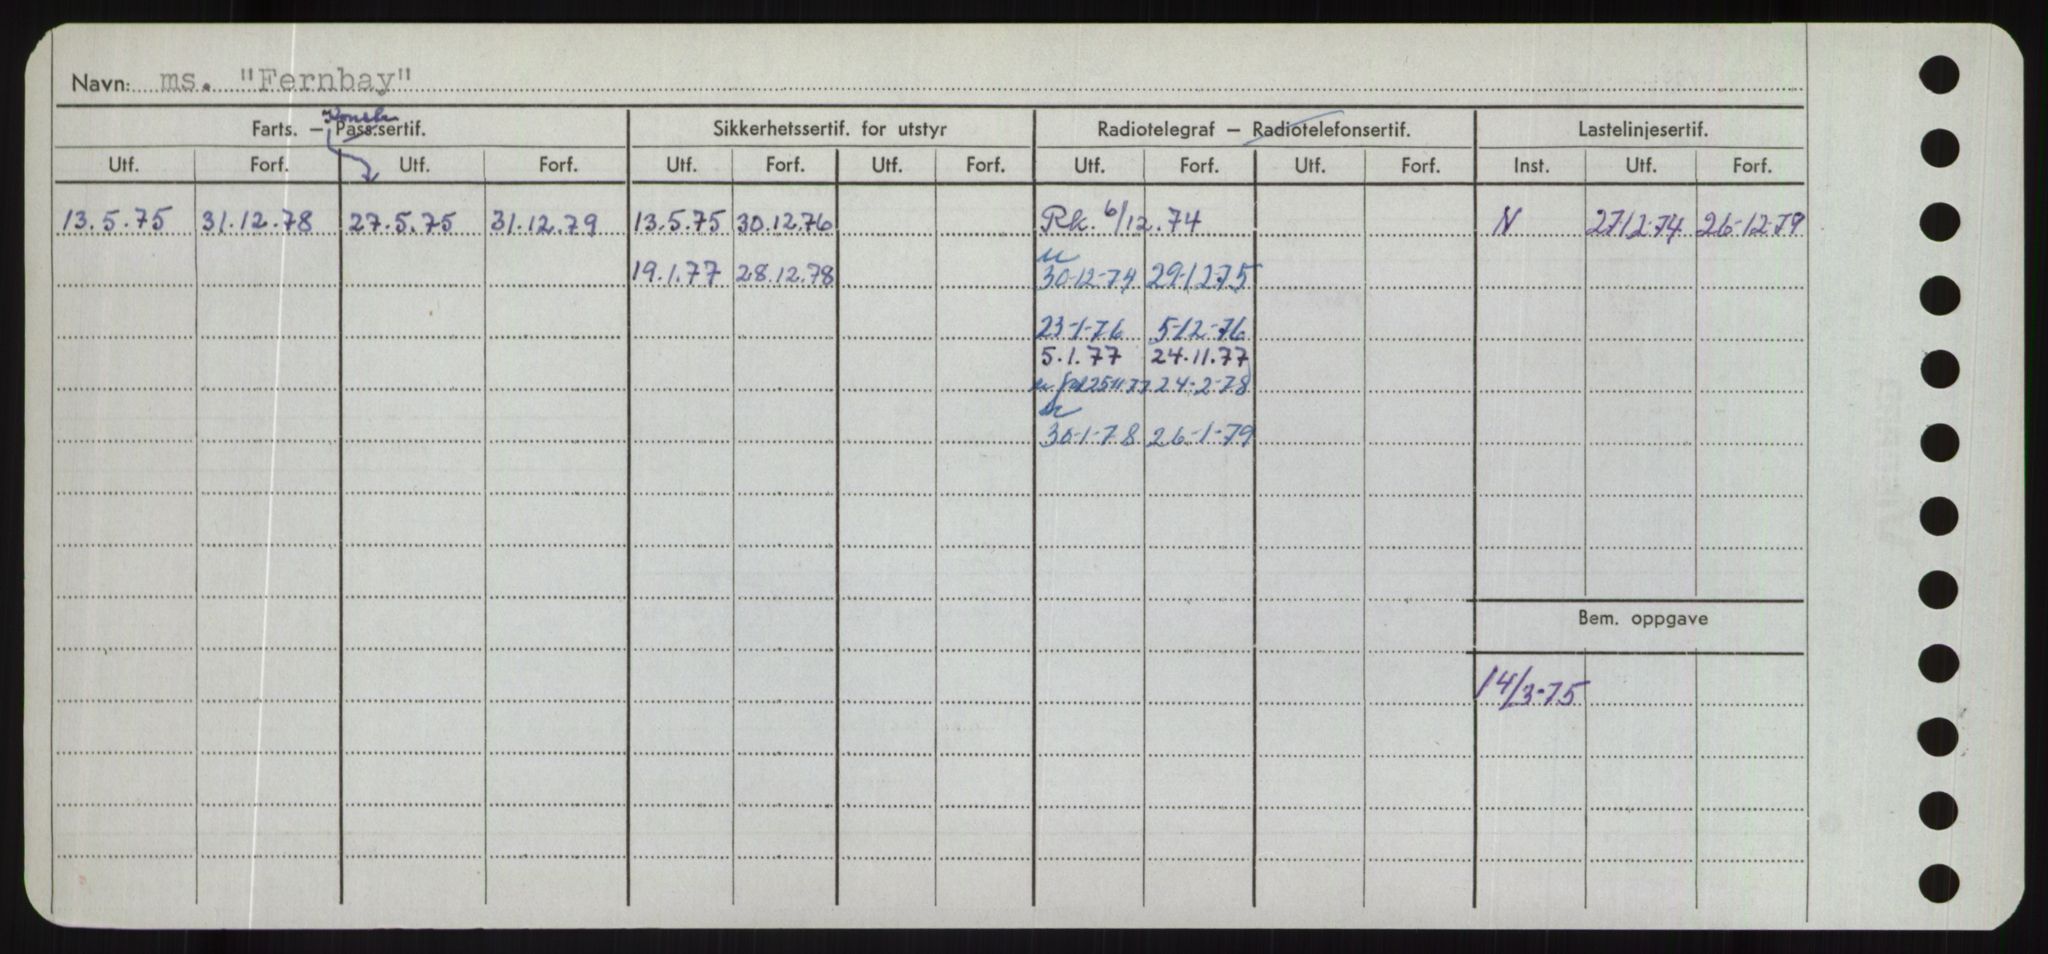 Navn: ms. "Fernbay"
Konstr.
Farts. – Pass.sertif. Sikkerhetssertif. for utstyr Radiotelegraf – Radiotelefonsertif. Lastelinjesertif.
Utf. Forf. Utf. Forf. Utf. Forf. Utf. Forf. Utf. Forf. Utf. Forf. Inst. Utf. Forf.
13.5.75 31.12.78 27.5.75 31.12.79 13.5.75 30.12.76 Rk. 6/12.74 N 27/12-74 26-12-79
19.1.77 28.12.78 30-12-74 29-12-75
23-1-76 5-12-76
5.1.77 24.11.77
25 11 77 24-2-78
30-1-78 26-1-79
Bem. oppgave
14/3-75